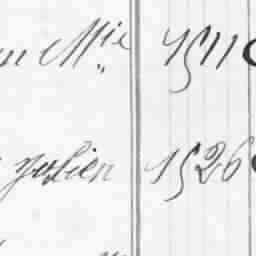 M.ie 1511
Julien 1526